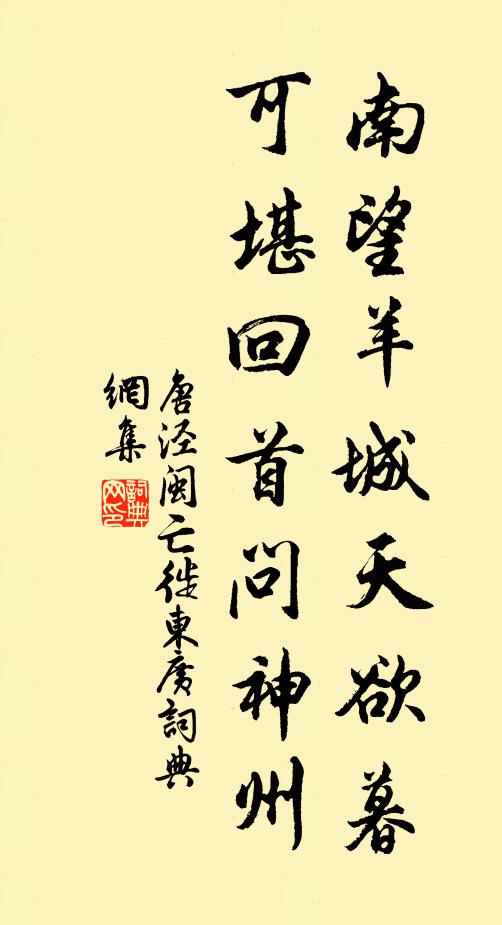 南望羊城天欲暮
可堪回首問神州
唐涇閩亡徙東廣詞典
網集
詞典
网印